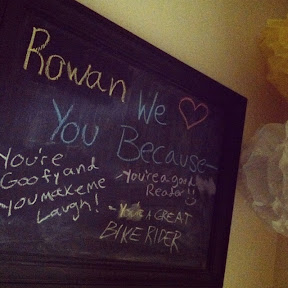 Rowan We ♡
You Because-
You're
Goofy and
you make me
Laugh!
-You're a good
Reader!!
- You're A GREAT
BIKE RIDER